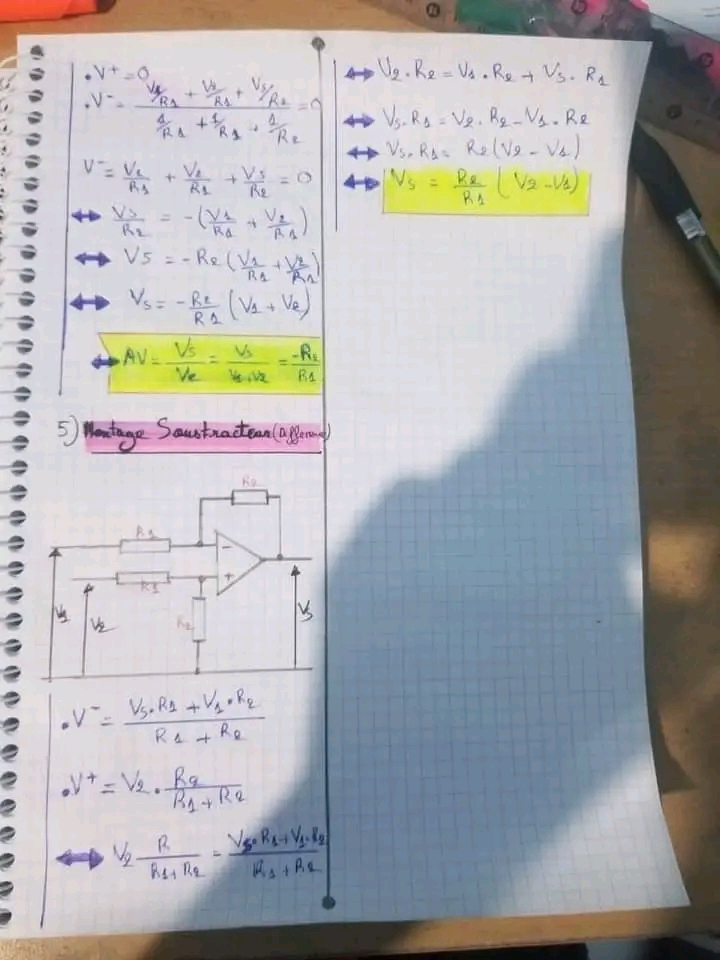 .V⁺ = 0
.V⁻ = (V1/R1 + V2/R1 + VS/R2) / (1/R1 + 1/R1 + 1/R2) = 0
V⁻ = V2/R1 + V2/R1 + VS/R2 = 0
⟷ VS/R2 = -(V1/R1 + V2/R1)
⟷ VS = -R2 (V1/R1 + V2/R1)
⟷ VS = -R2/R1 (V1 + V2)
⟷ AV = VS/Ve = VS/(V1+V2) = -R2/R1
5) Montage Soustracteur
R2
R1
-
R1
+
R2
V1
V2
VS
.V⁻ = (VS.R1 + V1.R2) / (R1 + R2)
.V⁺ = V2 . R2/(R1 + R2)
⟷ V2 R/(R1+R2) = (VS.R1 + V1.R2)/(R1 + R2)
⟷ V2.R2 = V1.R2 + VS.R1
⟷ VS.R1 = V2.R2 - V1.R2
⟷ VS.R1 = R2 (V2 - V1)
⟷ VS = R2/R1 (V2 - V1)